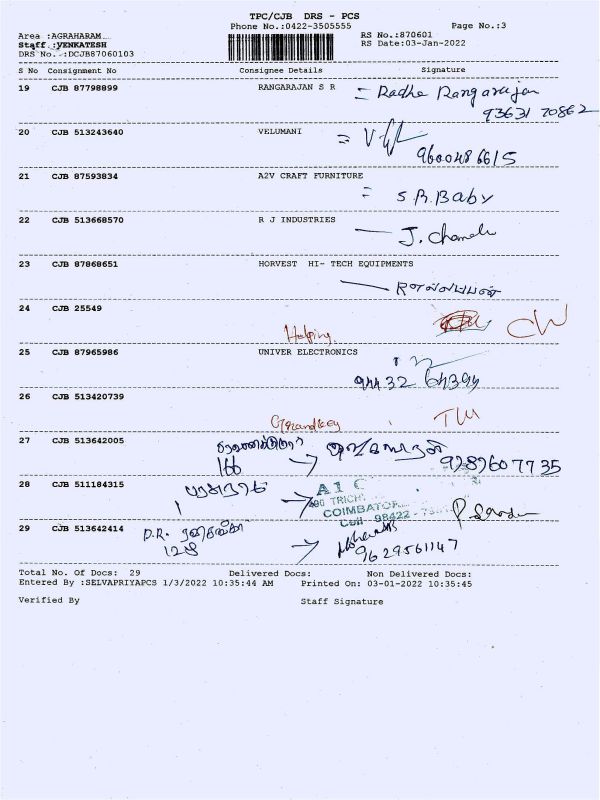 TPC/CJB DRS - PCS
Phone No.:0422-3505555
Page No.:3
Area :AGRAHARAM
RS No.:870601
Staff :VENKATESH
RS Date:03-Jan-2022
DRS No.:DCJB87060103
S No Consignment No Consignee Details Signature
19 CJB 87798899 RANGARAJAN S R = Radha Rangarajan
93631 70862
20 CJB 513243640 VELUMANI =
9600486615
21 CJB 87593834 A2V CRAFT FURNITURE
= S.R.Baby
22 CJB 513668570 R J INDUSTRIES
23 CJB 87868651 HORVEST HI- TECH EQUIPMENTS
24 CJB 25549
Helping CW
25 CJB 87965986 UNIVER ELECTRONICS
94432 64394
26 CJB 513420739
27 CJB 513642005
166 9289607735
28 CJB 511184315
A1C
TRICH
COIMBATOR
Cell 98422
29 CJB 513642414 D.R.
9629561147
Total No. Of Docs: 29 Delivered Docs: Non Delivered Docs:
Entered By :SELVAPRIYAPCS 1/3/2022 10:35:44 AM Printed On: 03-01-2022 10:35:45
Verified By Staff Signature